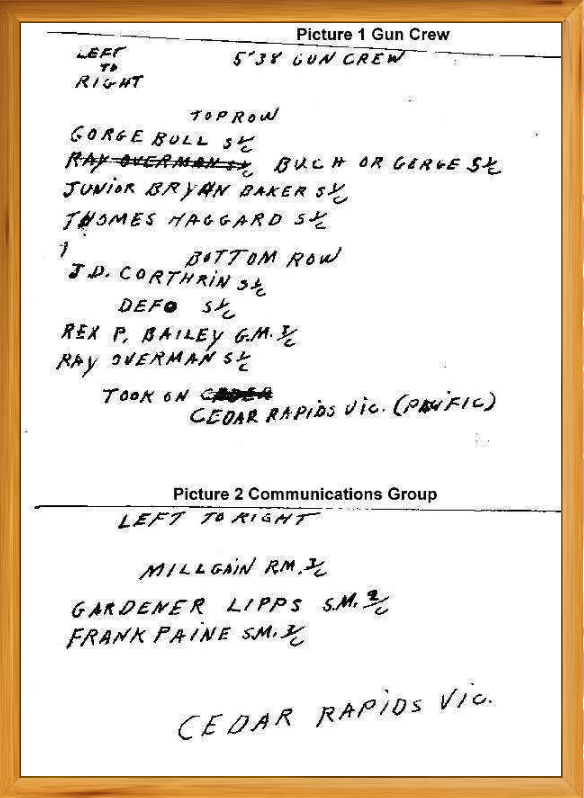 Picture 1 Gun Crew
LEFT
TO
RIGHT
5'38 GUN CREW
TOP ROW
GORGE BULL S 1/C
RAY OVERMAN S 1/C BUCH OR GERGE S 1/C
JUNIOR BRYAN BAKER S 1/C
THOMES HAGGARD S 1/C
BOTTOM ROW
J.D. CORTHRIN S 1/C
DEFO S 1/C
REX P. BAILEY G.M. 3/C
RAY OVERMAN S 1/C
TOOK ON
CEDAR RAPIDS VIC. (PACIFIC)
Picture 2 Communications Group
LEFT TO RIGHT
MILLGAIN RM. 3/C
GARDENER LIPPS S.M. 2/C
FRANK PAINE S.M. 3/C
CEDAR RAPIDS VIC.